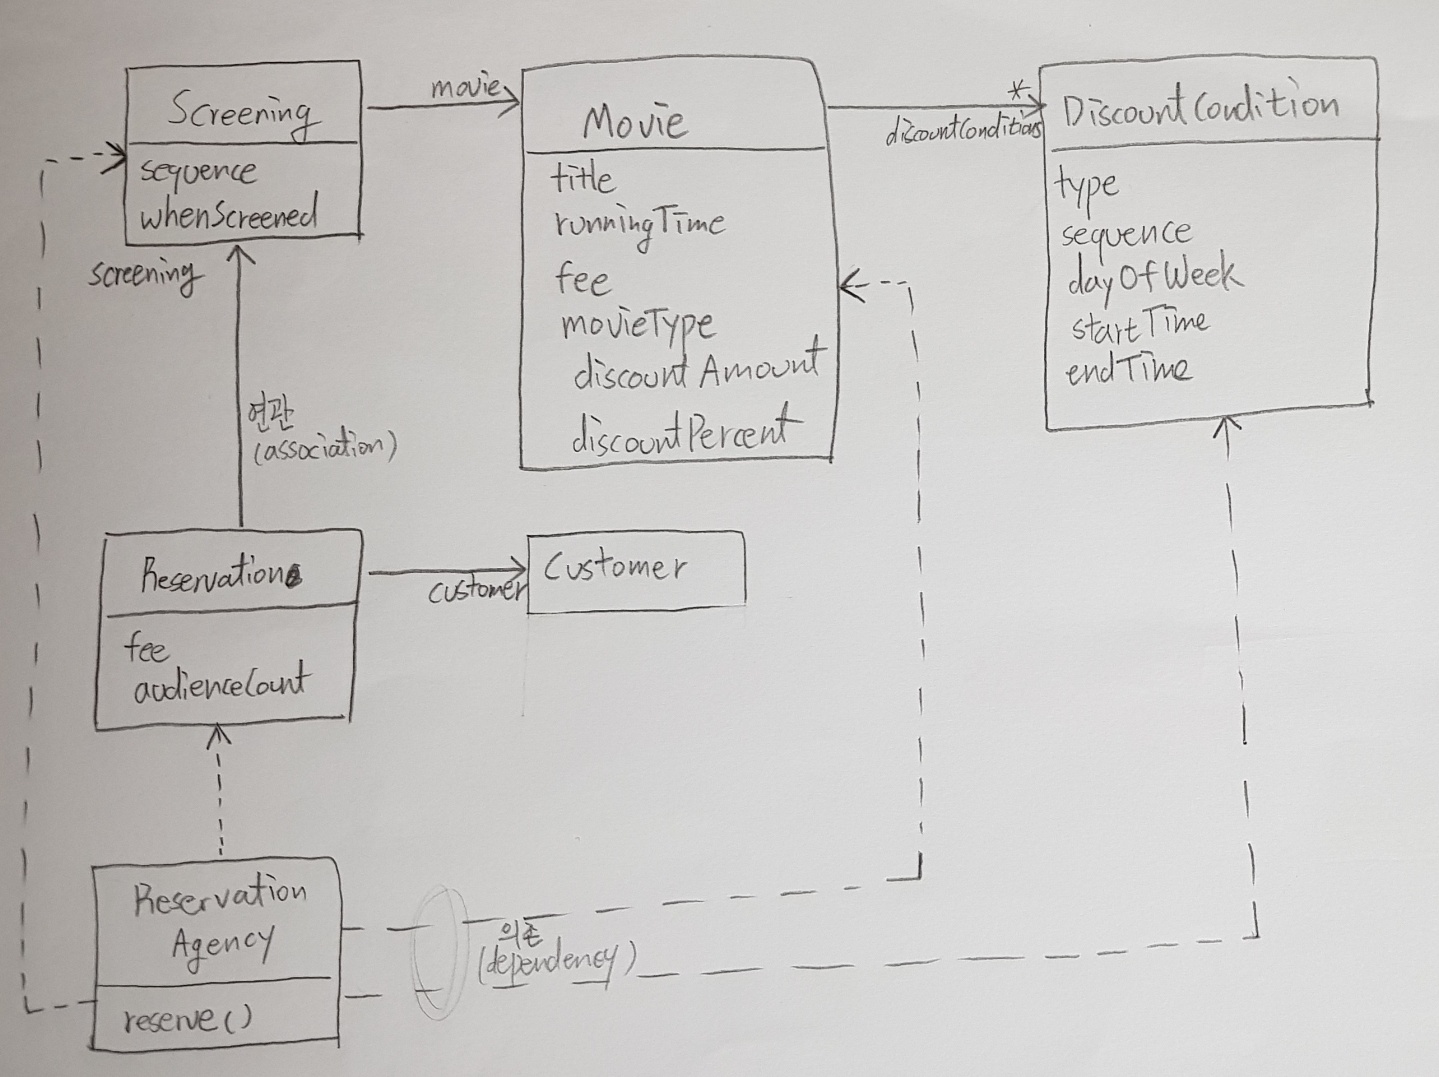 Screening
sequence
whenScreened
movie
Movie
title
runningTime
fee
movieType
discountAmount
discountPercent
*
discountConditions
DiscountCondition
type
sequence
dayOfWeek
startTime
endTime
screening
연관
(association)
Reservation
fee
audienceCount
customer
Customer
Reservation
Agency
reserve()
의존
(dependency)